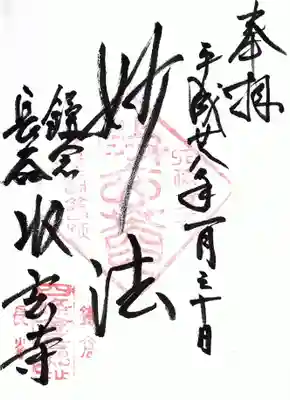 奉拝
平成廿八年一月三十日
妙法
鎌倉
長谷
収玄寺